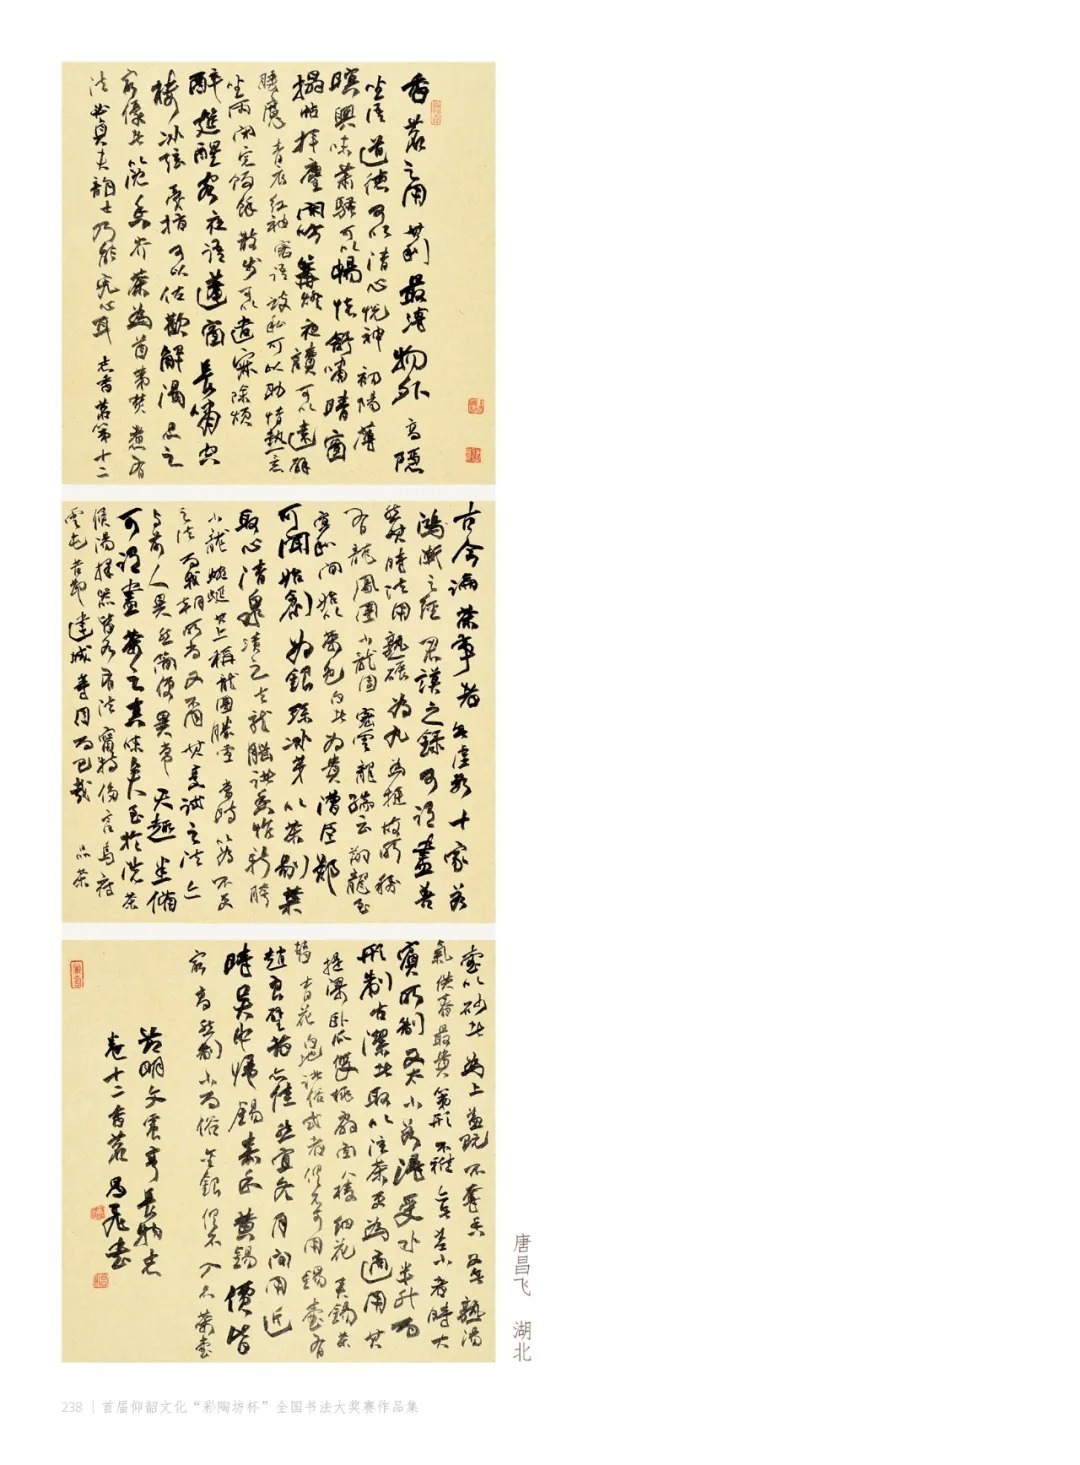 香茗之用其利最溥物外高隱
坐語道德可以清心悅神初陽薄
暝興味蕭騷可以暢懷舒嘯晴窗
搨帖揮麈閑吟篝燈夜讀可以遠辟
睡魔青衣紅袖密語談私可以助情熱意
坐雨閉窗飯餘散步可以遣寂除煩
醉筵醒客夜語蓬窗長嘯空
樓冰弦戛指可以佐歡解渴品之
最優者以沉香岕茶為首第焚煮有
法必貞夫韻士乃能究心耳 志香茗第十二
古今論茶事者無慮數十家若
鴻漸之經君謨之錄可謂盡善
然其時法用熟碾為丸為挺故所稱
有龍鳳團小龍團密雲龍瑞雲翔龍至
宣和間始以茶色白者為貴漕臣鄭
可聞始創為銀絲冰芽以茶剔葉
取心清泉漬之去龍腦諸香惟新胯
小龍蜿蜒其上稱龍團勝雪當時以為不更
之法而我朝所尚又不同其烹試之法亦
與前人異然簡便異常天趣悉備
可謂盡茶之真味矣至於洗茶
候湯擇器皆各有法寧特侈言烏府
雲屯苦節建城等目而已哉 品茶
壺以砂者為上蓋既不奪香又無熟湯
氣供春最貴第形不雅亦無差小者時大
賓所制又太小若得受水半升而
形制古潔者取以注茶更為適用其
提梁臥瓜雙桃扇面八棱細花夾錫茶
替青花白地諸俗式者俱不可用錫壺有
趙良璧者亦佳然宜冬月間用近
時吳中歸錫嘉禾黃錫價皆
最高然制小而俗金銀俱不入品 茶壺
節明文震亨長物志
卷十二香茗 昌飛書
唐昌飞 湖北
238 | 首届仰韶文化“彩陶坊杯”全国书法大奖赛作品集